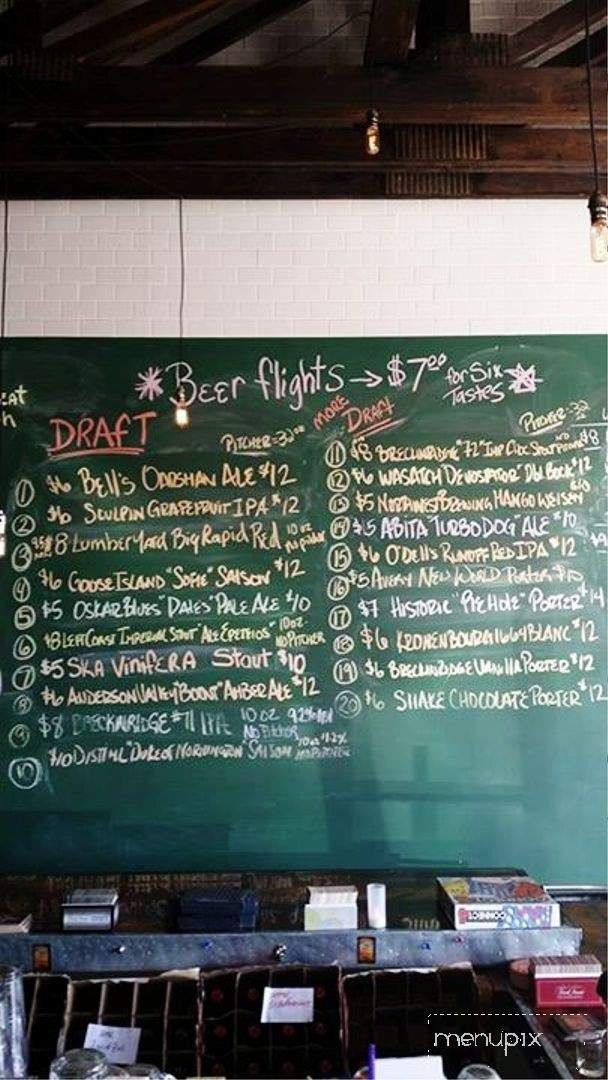 * Beer flights → $7.00 for Six Tastes
DRAFT
PITCHER = 32oz
1 $6 BELL'S OARSMAN ALE $12
2 $6 SCULPIN GRAPEFRUIT IPA $12
3 8 LUMBERYARD BIG RAPID RED 10 oz no pitcher
4 $6 GOOSE ISLAND "SOFIE" SAISON $12
5 $5 OSKAR BLUES "DALES" PALE ALE $10
6 $8 LEFT COAST IMPERIAL STOUT "ALE EPETEIOS" 10oz- NO PITCHER
7 $5 SKA VINIFERA STOUT $10
8 $6 ANDERSON VALLEY "BOONT" AMBER ALE $12
9 $8 BRECKNRIDGE 71 IPA 10 oz 9.2% NO PITCHER
10 $10 "DUKE OF" SAISON 10 oz NO PITCHER
MORE DRAFT
PITCHER = 32
11 $8 BRECKNRIDGE "72" IMP CHOC STOUT NO
12 $6 WASATCH DEVASTATOR DBL BOCK $12
13 $5 BREWING MANGO WEISEN $10
14 $5 ABITA TURBODOG ALE $10
15 $6 O'DELLS RUNOFF RED IPA $12
16 $5 AVERY NEW WORLD PORTER $10
17 $7 HISTORIC "PIE HOLE" PORTER $14
18 $6 KRONENBOURG 1664 BLANC $12
19 $6 BRECKNRIDGE VANILLA PORTER $12
20 $6 SHAKE CHOCOLATE PORTER $12
CONNECT
menupix